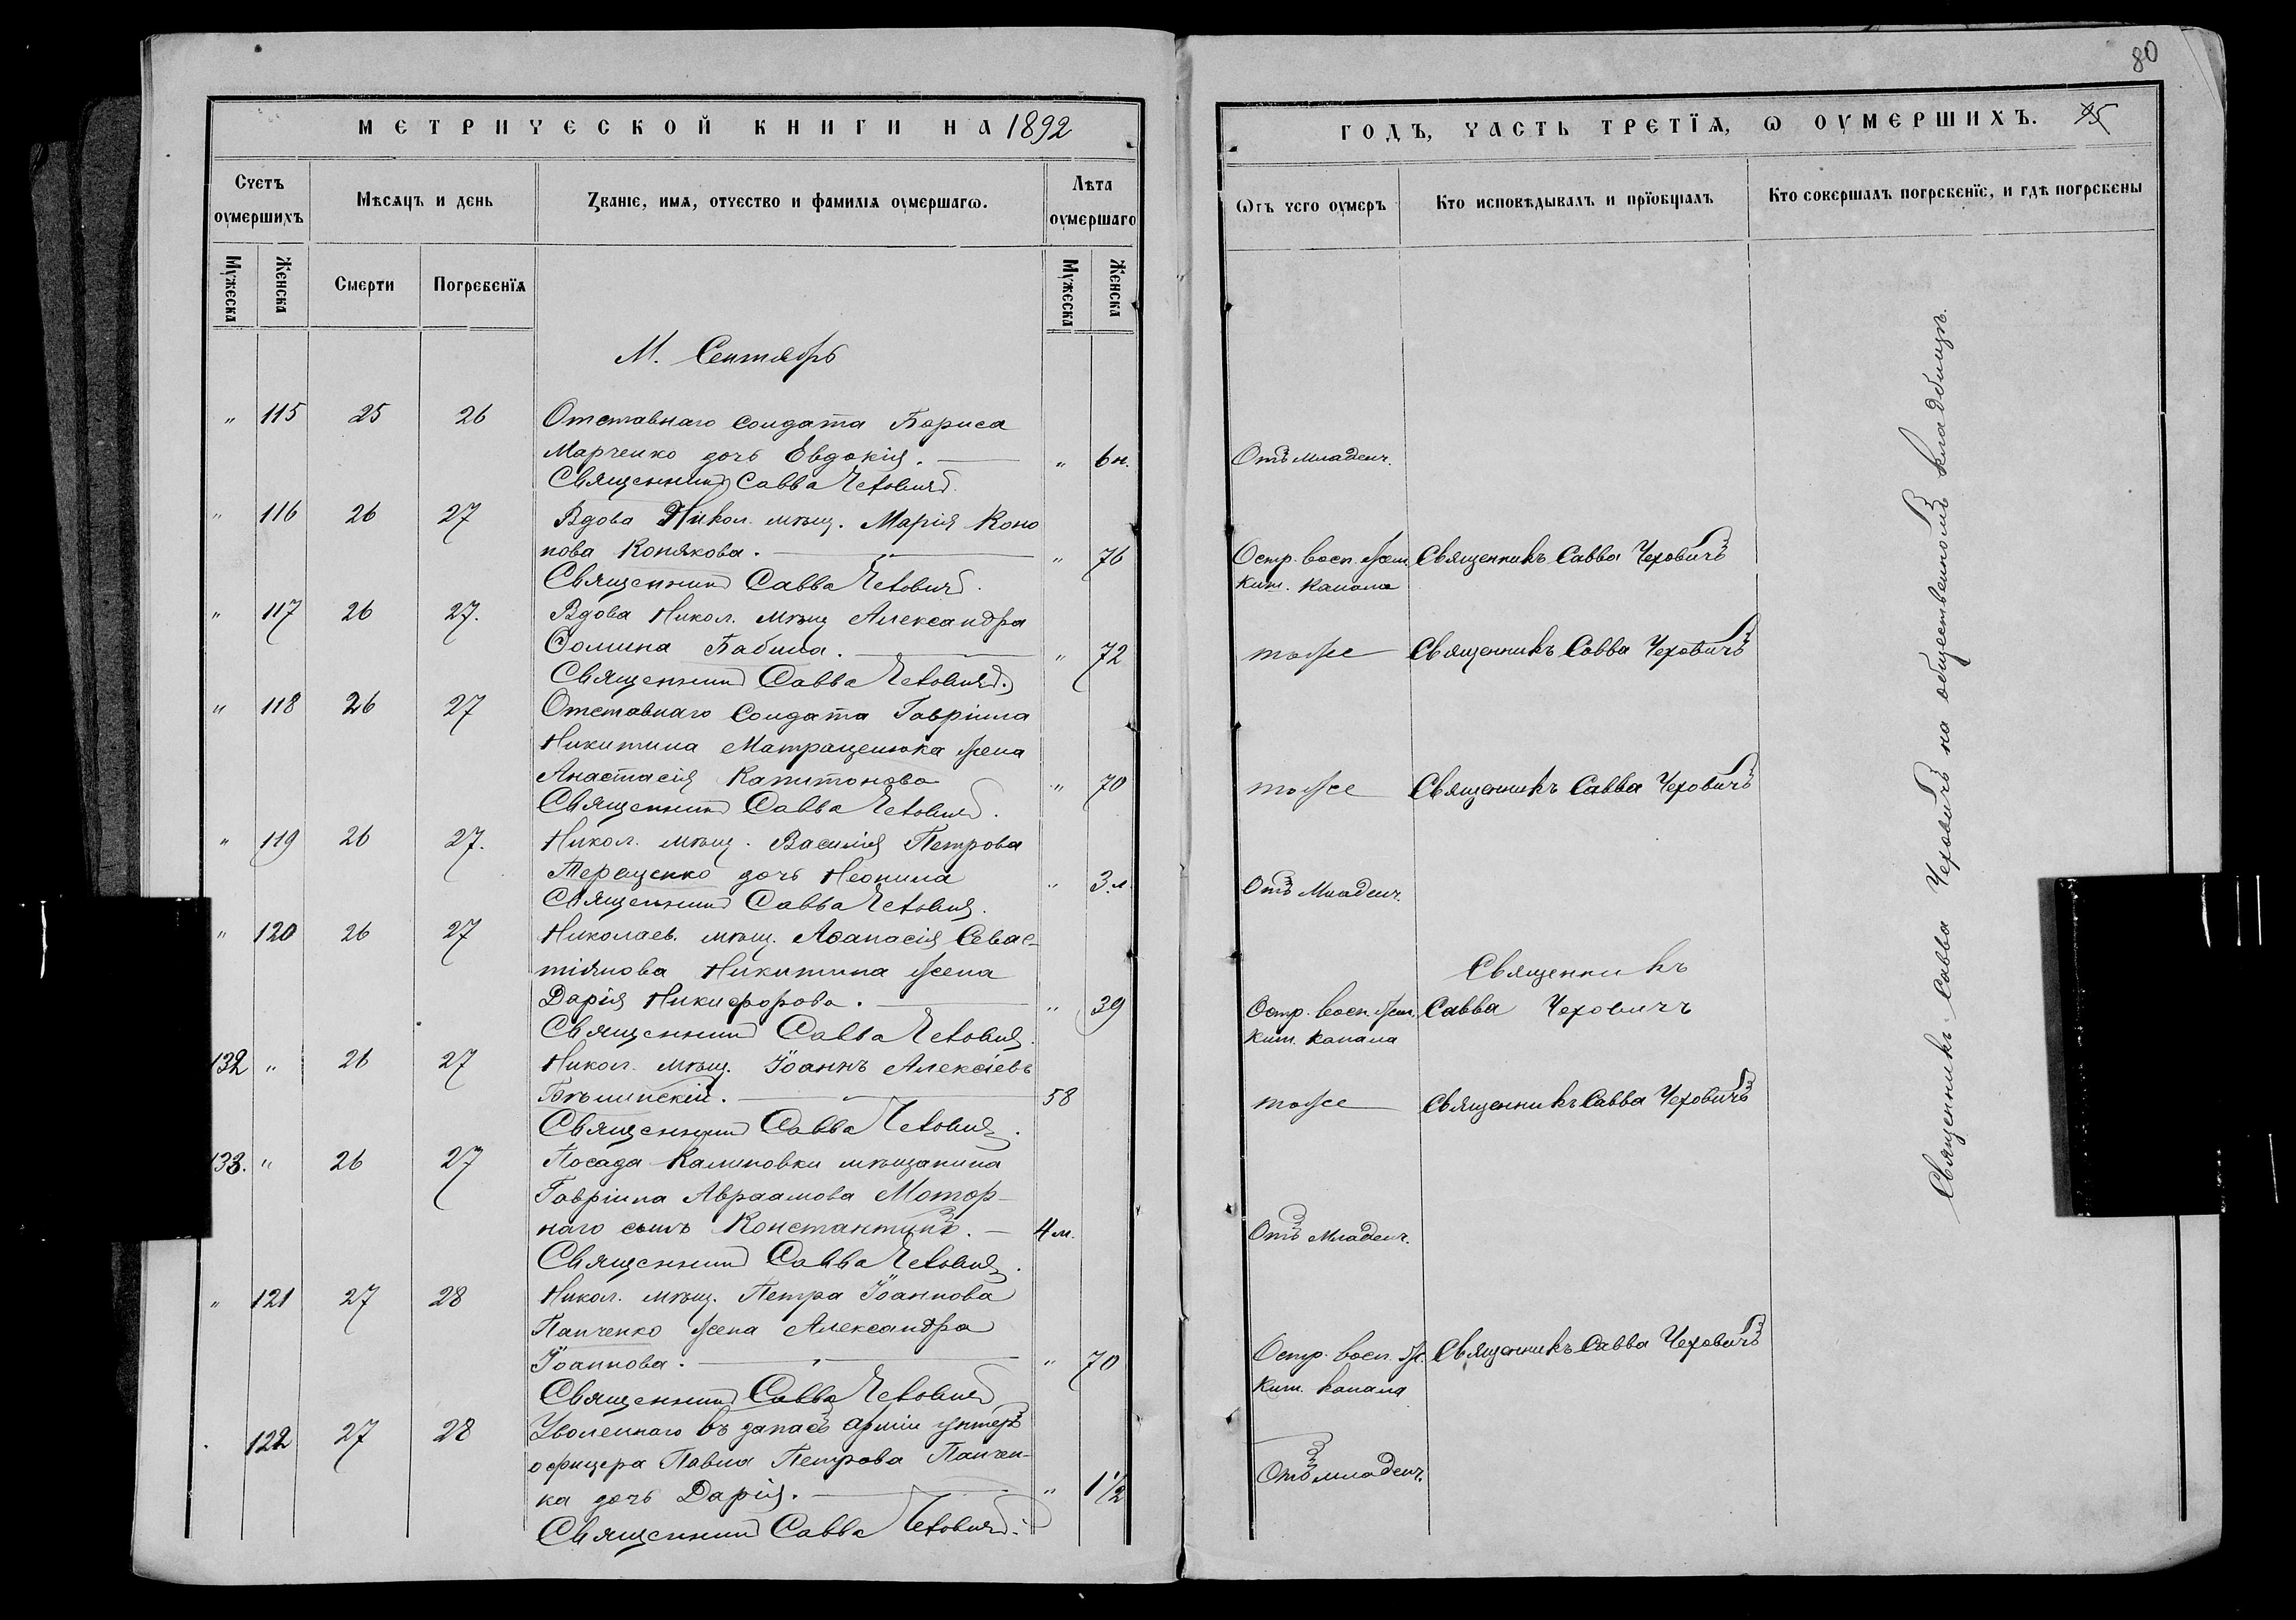 МЕТРИЧЕСКОЙ КНИГИ НА 1892
Счетъ оумершихъ
Мѣсяцъ и день
Званіе, имя, отчество и фамилія оумершагѡ.
Лѣта оумершаго
Мужеска
Женска
Смерти
Погребенїя
Мужеска
Женска
М. Сентябрь
" 115 25 26 Отставнаго солдата Бориса
Марченко дочь Евдокія. " 6 н.
Священникъ Савва Чеховичъ.
" 116 26 27 Вдова Никол. мѣщ. Марія Коно
нова Конякова. " 76
Священникъ Савва Чеховичъ.
" 117 26 27. Вдова Никол. мѣщ. Александра
Ѳомина Бабина. " 72
Священникъ Савва Чеховичъ.
" 118 26 27 Отставнаго солдата Гавріила
Никитина Матращенюка жена
Анастасія Капитонова " 70
Священникъ Савва Чеховичъ.
" 119 26 27. Никол. мѣщ. Василія Петрова
Терещенко дочь Неонила " 3. л.
Священникъ Савва Чеховичъ.
" 120 26 27 Николаев. мѣщ. Аѳанасія Севас-
тіянова Никитина жена
Дарія Никифорова. " 39
Священникъ Савва Чеховичъ.
132 " 26 27 Никол. мѣщ. Іоаннъ Алексіевъ
Бѣлинскій. 58
Священникъ Савва Чеховичъ.
133. " 26 27 Посада Калиновки мѣщанина
Гавріила Авраамова Мотор-
наго сынъ Константинъ. 4 м.
Священникъ Савва Чеховичъ.
" 121 27 28 Никол. мѣщ. Петра Іоаннова
Панченко жена Александра
Іоаннова. " 70
Священникъ Савва Чеховичъ
122 27 28 Уволеннаго въ запасъ арміи унтеръ
офицера Павла Петрова Панчен-
ка дочь Дарія. " 1 1/2
Священникъ Савва Чеховичъ.
80
ГОДЪ, ЧАСТЬ ТРЕТЇЯ, Ѡ ОУМЕРШИХЪ. 75
Ѿтъ чего оумеръ
Кто исповѣдывалъ и прїобщалъ
Кто совершалъ погребенїе, и гдѣ погребены
Отъ младенч.
Остр. восп. жел. Священникъ Савва Чеховичъ
киш. канала
тоже Священникъ Савва Чеховичъ
тоже Священникъ Савва Чеховичъ
Отъ Младенч.
Священникъ
Остр. восп. жел. Савва Чеховичъ
киш. канала
тоже Священникъ Савва Чеховичъ
Отъ Младенч.
Остр. восп. ж. Священникъ Савва Чеховичъ
киш. канала
Отъ младенч.
Священникъ Савва Чеховичъ на общественномъ кладбищѣ.